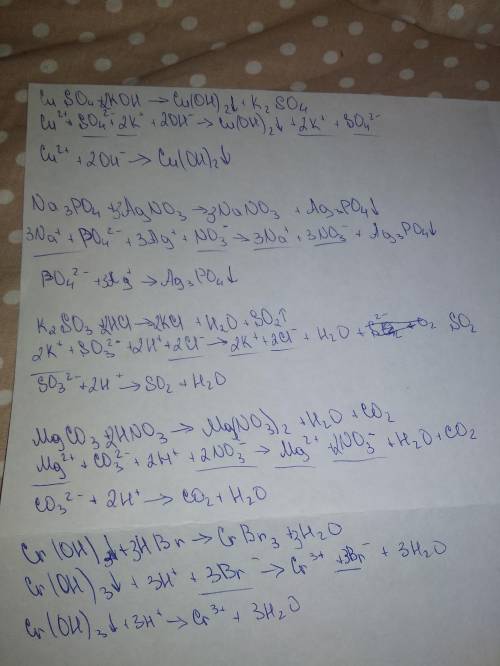 CuSO4+2KOH → Cu(OH)2↓ + K2SO4
Cu2+ + SO4 2- + 2K+ + 2OH- → Cu(OH)2↓ + 2K+ + SO4 2-
Cu2+ + 2OH- → Cu(OH)2↓
Na3PO4 + 3AgNO3 → 3NaNO3 + Ag3PO4↓
3Na+ + PO4 2- + 3Ag+ + NO3- → 3Na+ + 3NO3- + Ag3PO4↓
PO4 2- + 3Ag+ → Ag3PO4↓
K2SO3+2HCl → 2KCl + H2O + SO2↑
2K+ + SO3 2- + 2H+ + 2Cl- → 2K+ + 2Cl- + H2O + SO2
SO3 2- + 2H+ → SO2 + H2O
MgCO3+2HNO3 → Mg(NO3)2 + H2O + CO2
Mg2+ + CO3 2- + 2H+ + 2NO3- → Mg2+ + 2NO3- + H2O + CO2
CO3 2- + 2H+ → CO2 + H2O
Cr(OH)3↓ + 3HBr → CrBr3 + 3H2O
Cr(OH)3↓ + 3H+ + 3Br- → Cr3+ + 3Br- + 3H2O
Cr(OH)3↓ + 3H+ → Cr3+ + 3H2O